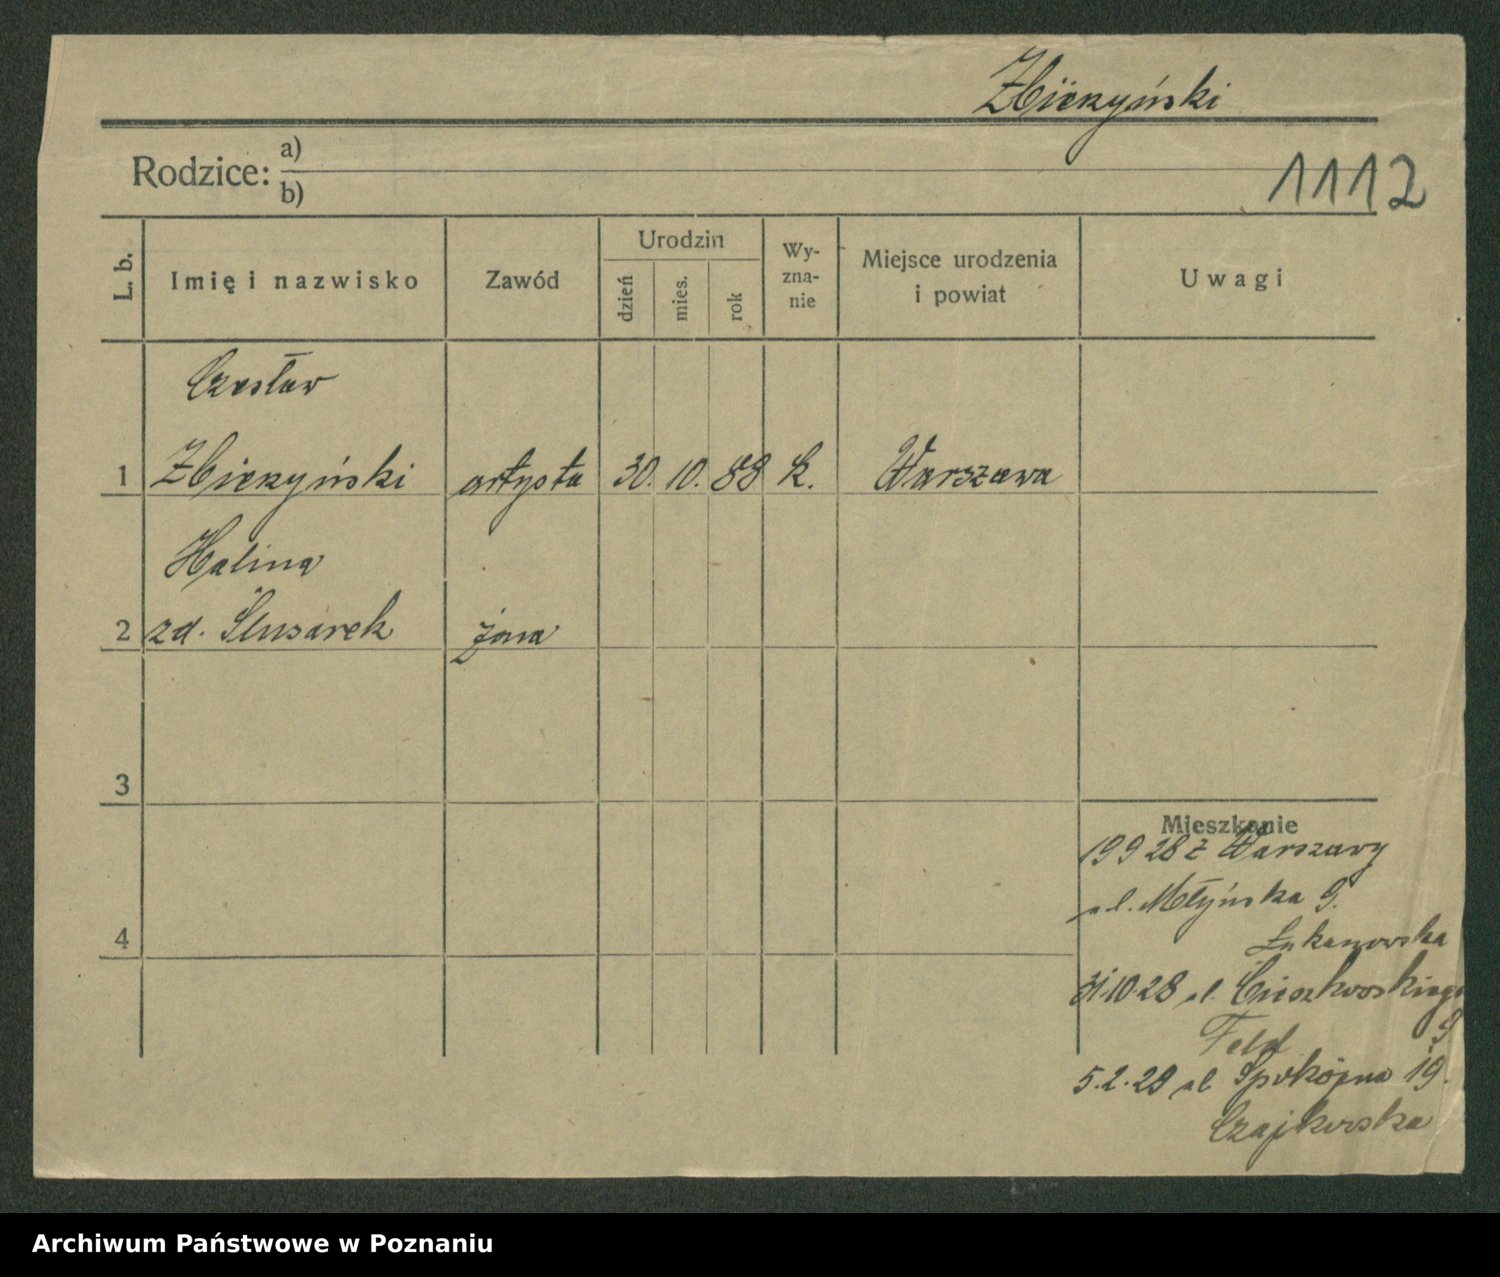 Zbierzyński
Rodzice: a)
b)
1112
L. b.
Imię i nazwisko
Zawód
Urodzin
dzień
mies.
rok
Wy-
zna-
nie
Miejsce urodzenia
i powiat
Uwagi
Czesław
1 Zbierzyński artysta 30. 10. 88 k. Warszawa
Halina
2 zd. Ślusarek żona
3
Mieszkanie
19 9 28 z Warszawy
ul. Młyńska 9.
4
Łukanowska
31.10.28 ul. Cieszkowskiego
9.
Feld
5.2.29 ul Spokojna 19.
Czajkowska
Archiwum Państwowe w Poznaniu